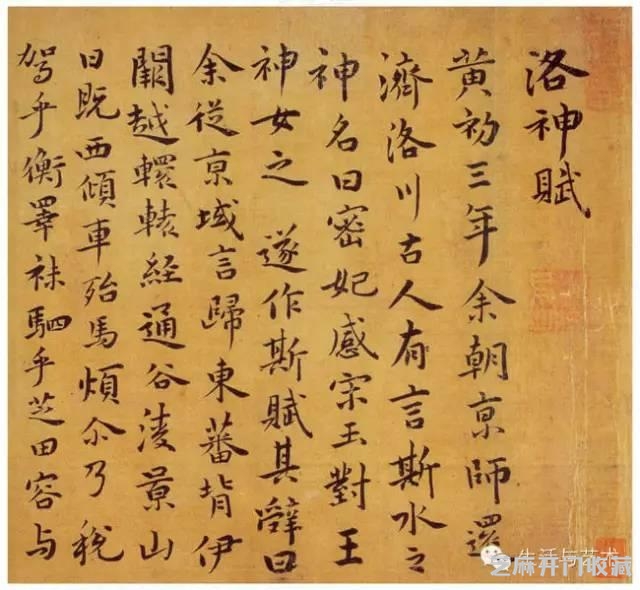 洛神賦
黄初三年余朝京師還
濟洛川古人有言斯水之
神名曰密妃感宋玉對王
神女之 遂作斯賦其辭曰
余從京域言歸東蕃背伊
闕越轘轅経通谷陵景山
日既西傾車殆馬煩尒乃税
駕乎衡皋秣駟乎芝田容与
生活与艺术
芝麻开门收藏